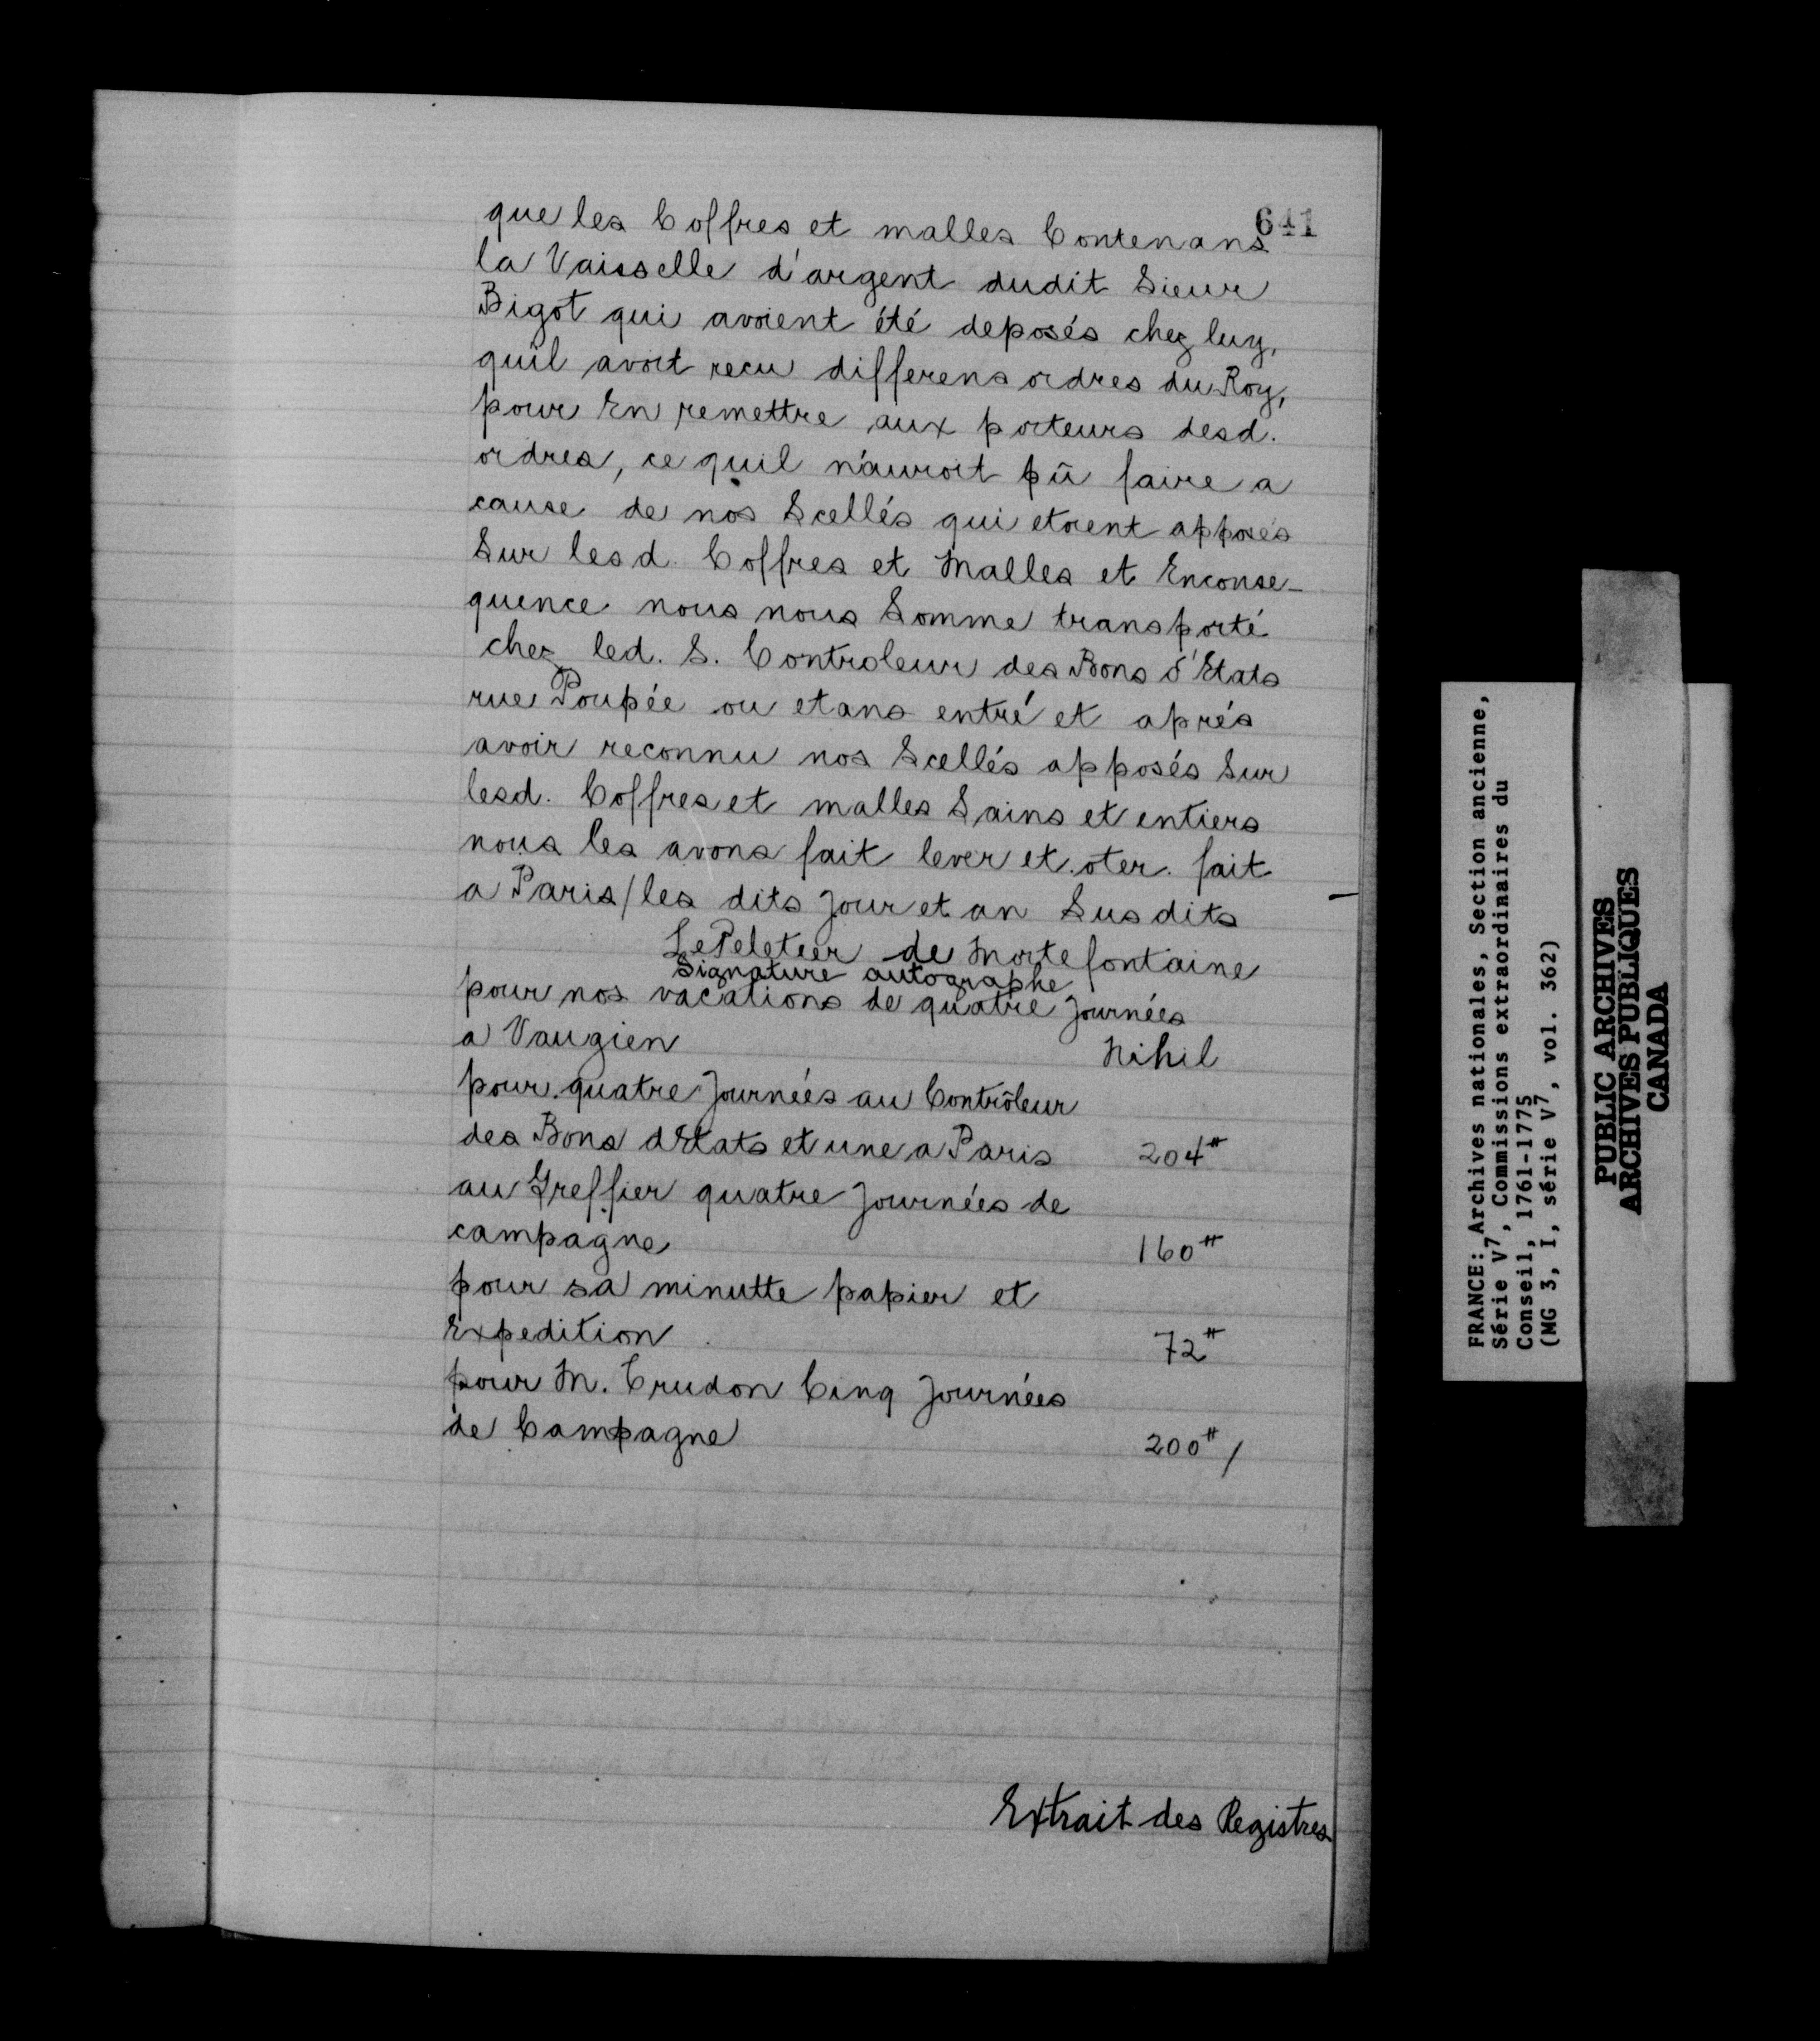 641
que les Coffres et malles Contenans
la Vaisselle d'argent dudit Sieur
Bigot qui avoient été deposés chez luy,
quil avoit recu differens ordres du Roy,
pour En remettre aux porteurs desd.
ordres, ce quil n'auroit pû faire a
cause de nos Scellés qui etoient apposés
Sur lesd. Coffres et Malles et Enconse-
quence nous nous Somme transporté
chez led. S. Controleur des Bons d'Etats
rue Poupée ou etans entré et aprés
avoir reconnu nos Scellés apposés Sur
lesd. Coffres et malles Sains et entiers
nous les avons fait lever et oter. fait
a Paris / les dits Jour et an Susdits
LePeletier de Mortefontaine
Signature autographe
pour nos vacations de quatre Journées
a Vaugien Nihil
pour quatre Journées au Contrôleur
des Bons dEtats et une a Paris 204#
au Greffier quatre Journées de
campagne 160#
pour sa minutte papier et
Expedition 72#
pour M. Trudon Cinq Journées
de Campagne 200# /
Extrait des Registres
FRANCE: Archives nationales, Section ancienne,
Série V7, Commissions extraordinaires du
Conseil, 1761-1775
(MG 3, I, série V7, vol. 362)
PUBLIC ARCHIVES
ARCHIVES PUBLIQUES
CANADA